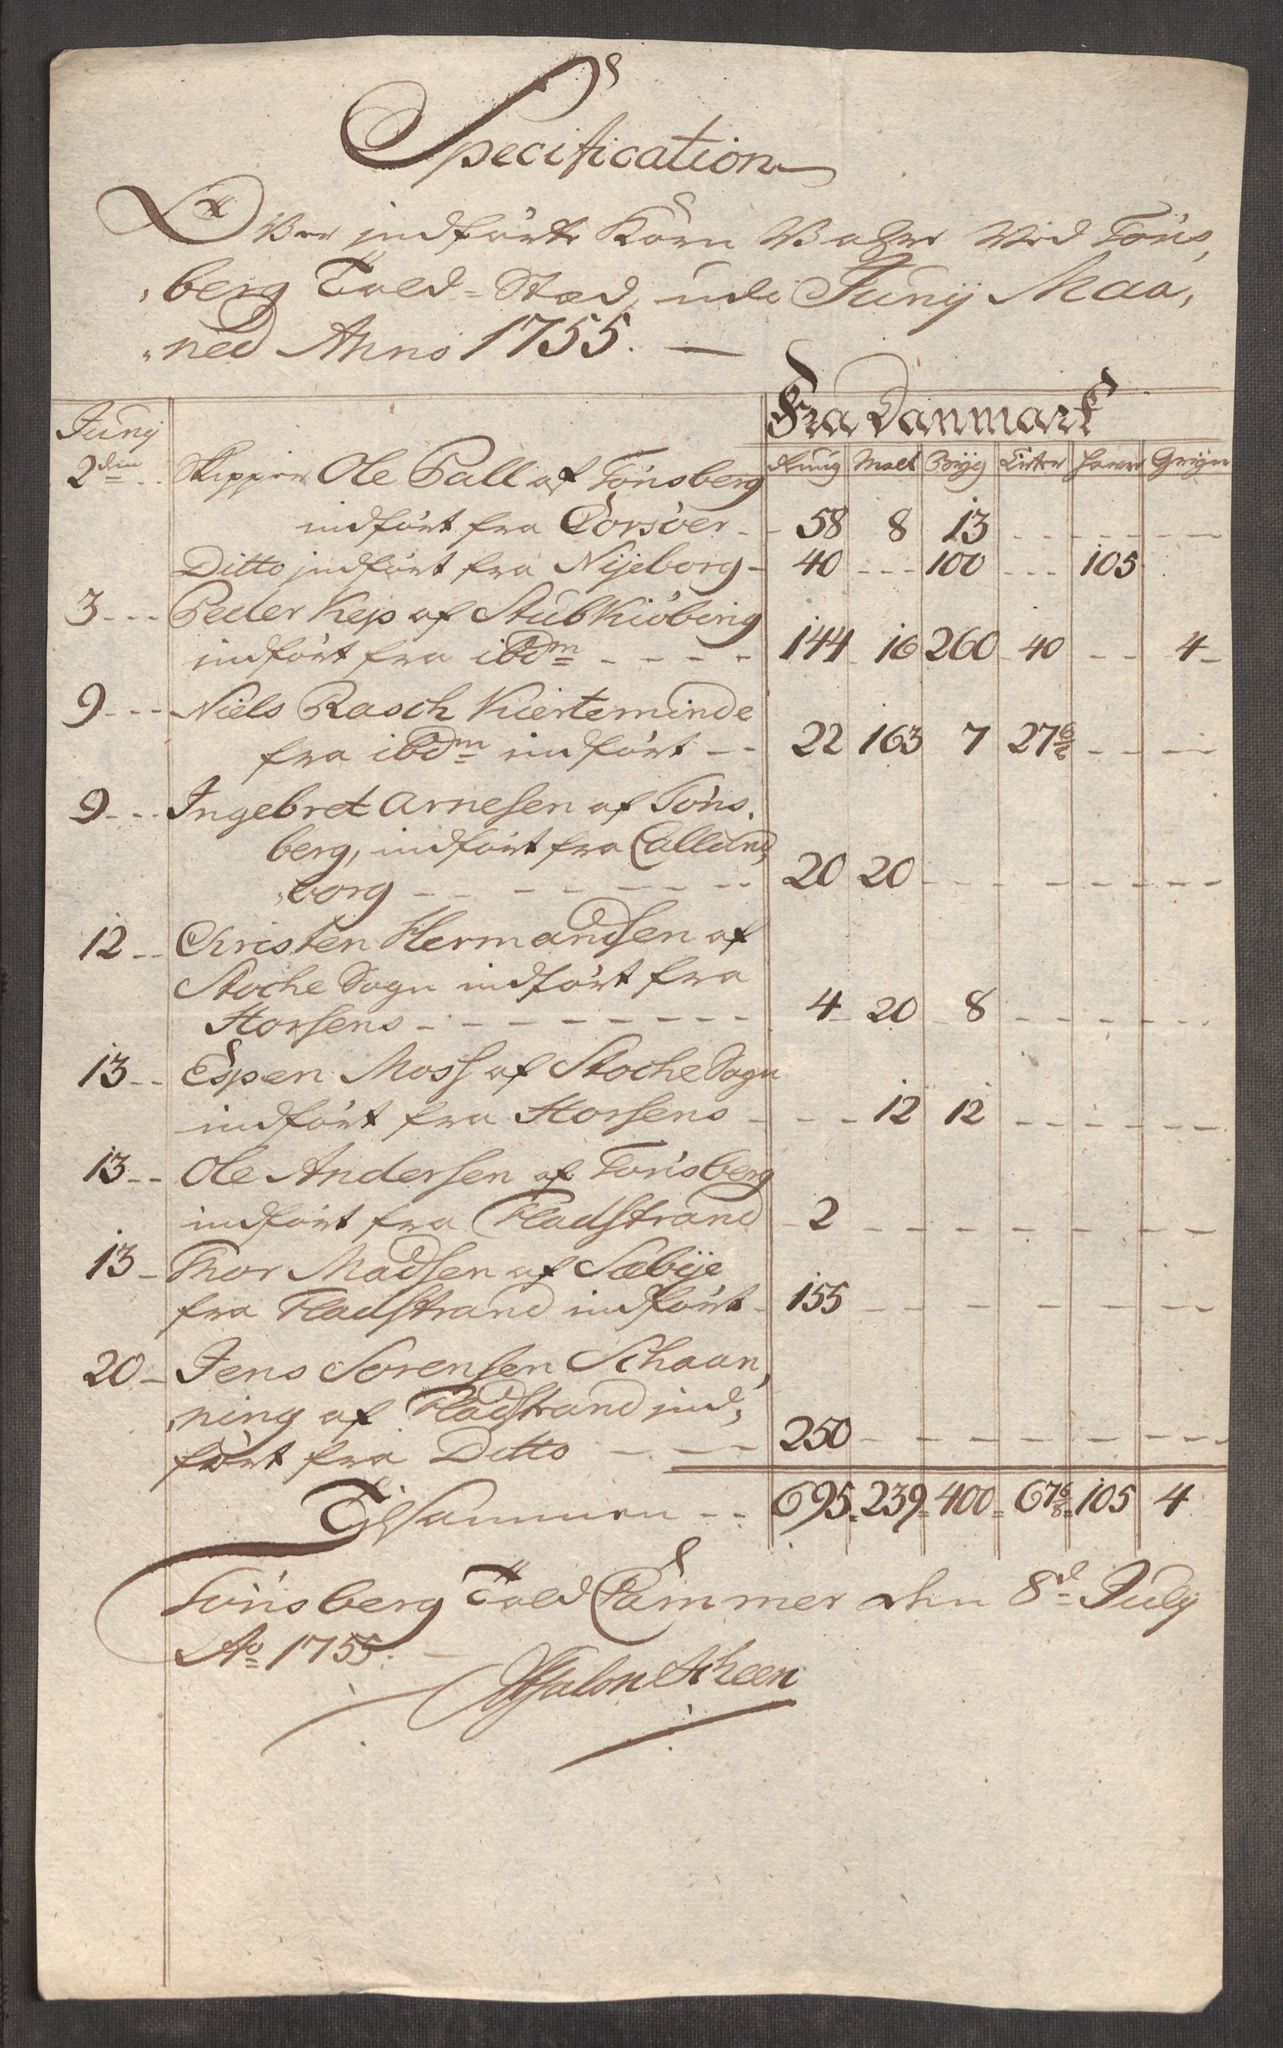 Specification
Over indførte Korn Vahre Ved Töns,
,berg Told-Stæd, udi Junij Maa,
,ned Anno 1755.
Fra Danmark
Junij
Rug Malt Bÿg Erter Haver Grÿn
2den Skipper Ole Pall af Tönsberg
indfört fra Corsöer - 58 8 13
Ditto indfört fra Nijeborg - 40 100 105
3 Peder Kejs af Stubkiöbing
indfört fra ibdm 144 16 260 40 4
9 Niels Rasch Kierteminde
fra ibdm indfört 22 163 7 27 6/8
9 Ingebret Arnesen af Töns,
berg, indfört fra Callund,
,borg 20 20
12 Christen Hermandsen af
Stoche Sogn indfört fra
Horsens 4 20 8
13 Espen Moss af Stoche Sogn
indfört fra Horsens 12 12
13 Ole Andersen af Tönsberg
indfört fra Fladstrand 2
13 Thor Madsen af Sæbÿe
fra Fladstrand indfört 155
20 Jens Sörensen Schaan,
,ning af Fladstrand ind,
fört fra Ditto 250
Tilsammen 695 239 400 67 6/8 105 4
Tönsberg Told Cammer den 8d July
Ao 1755.